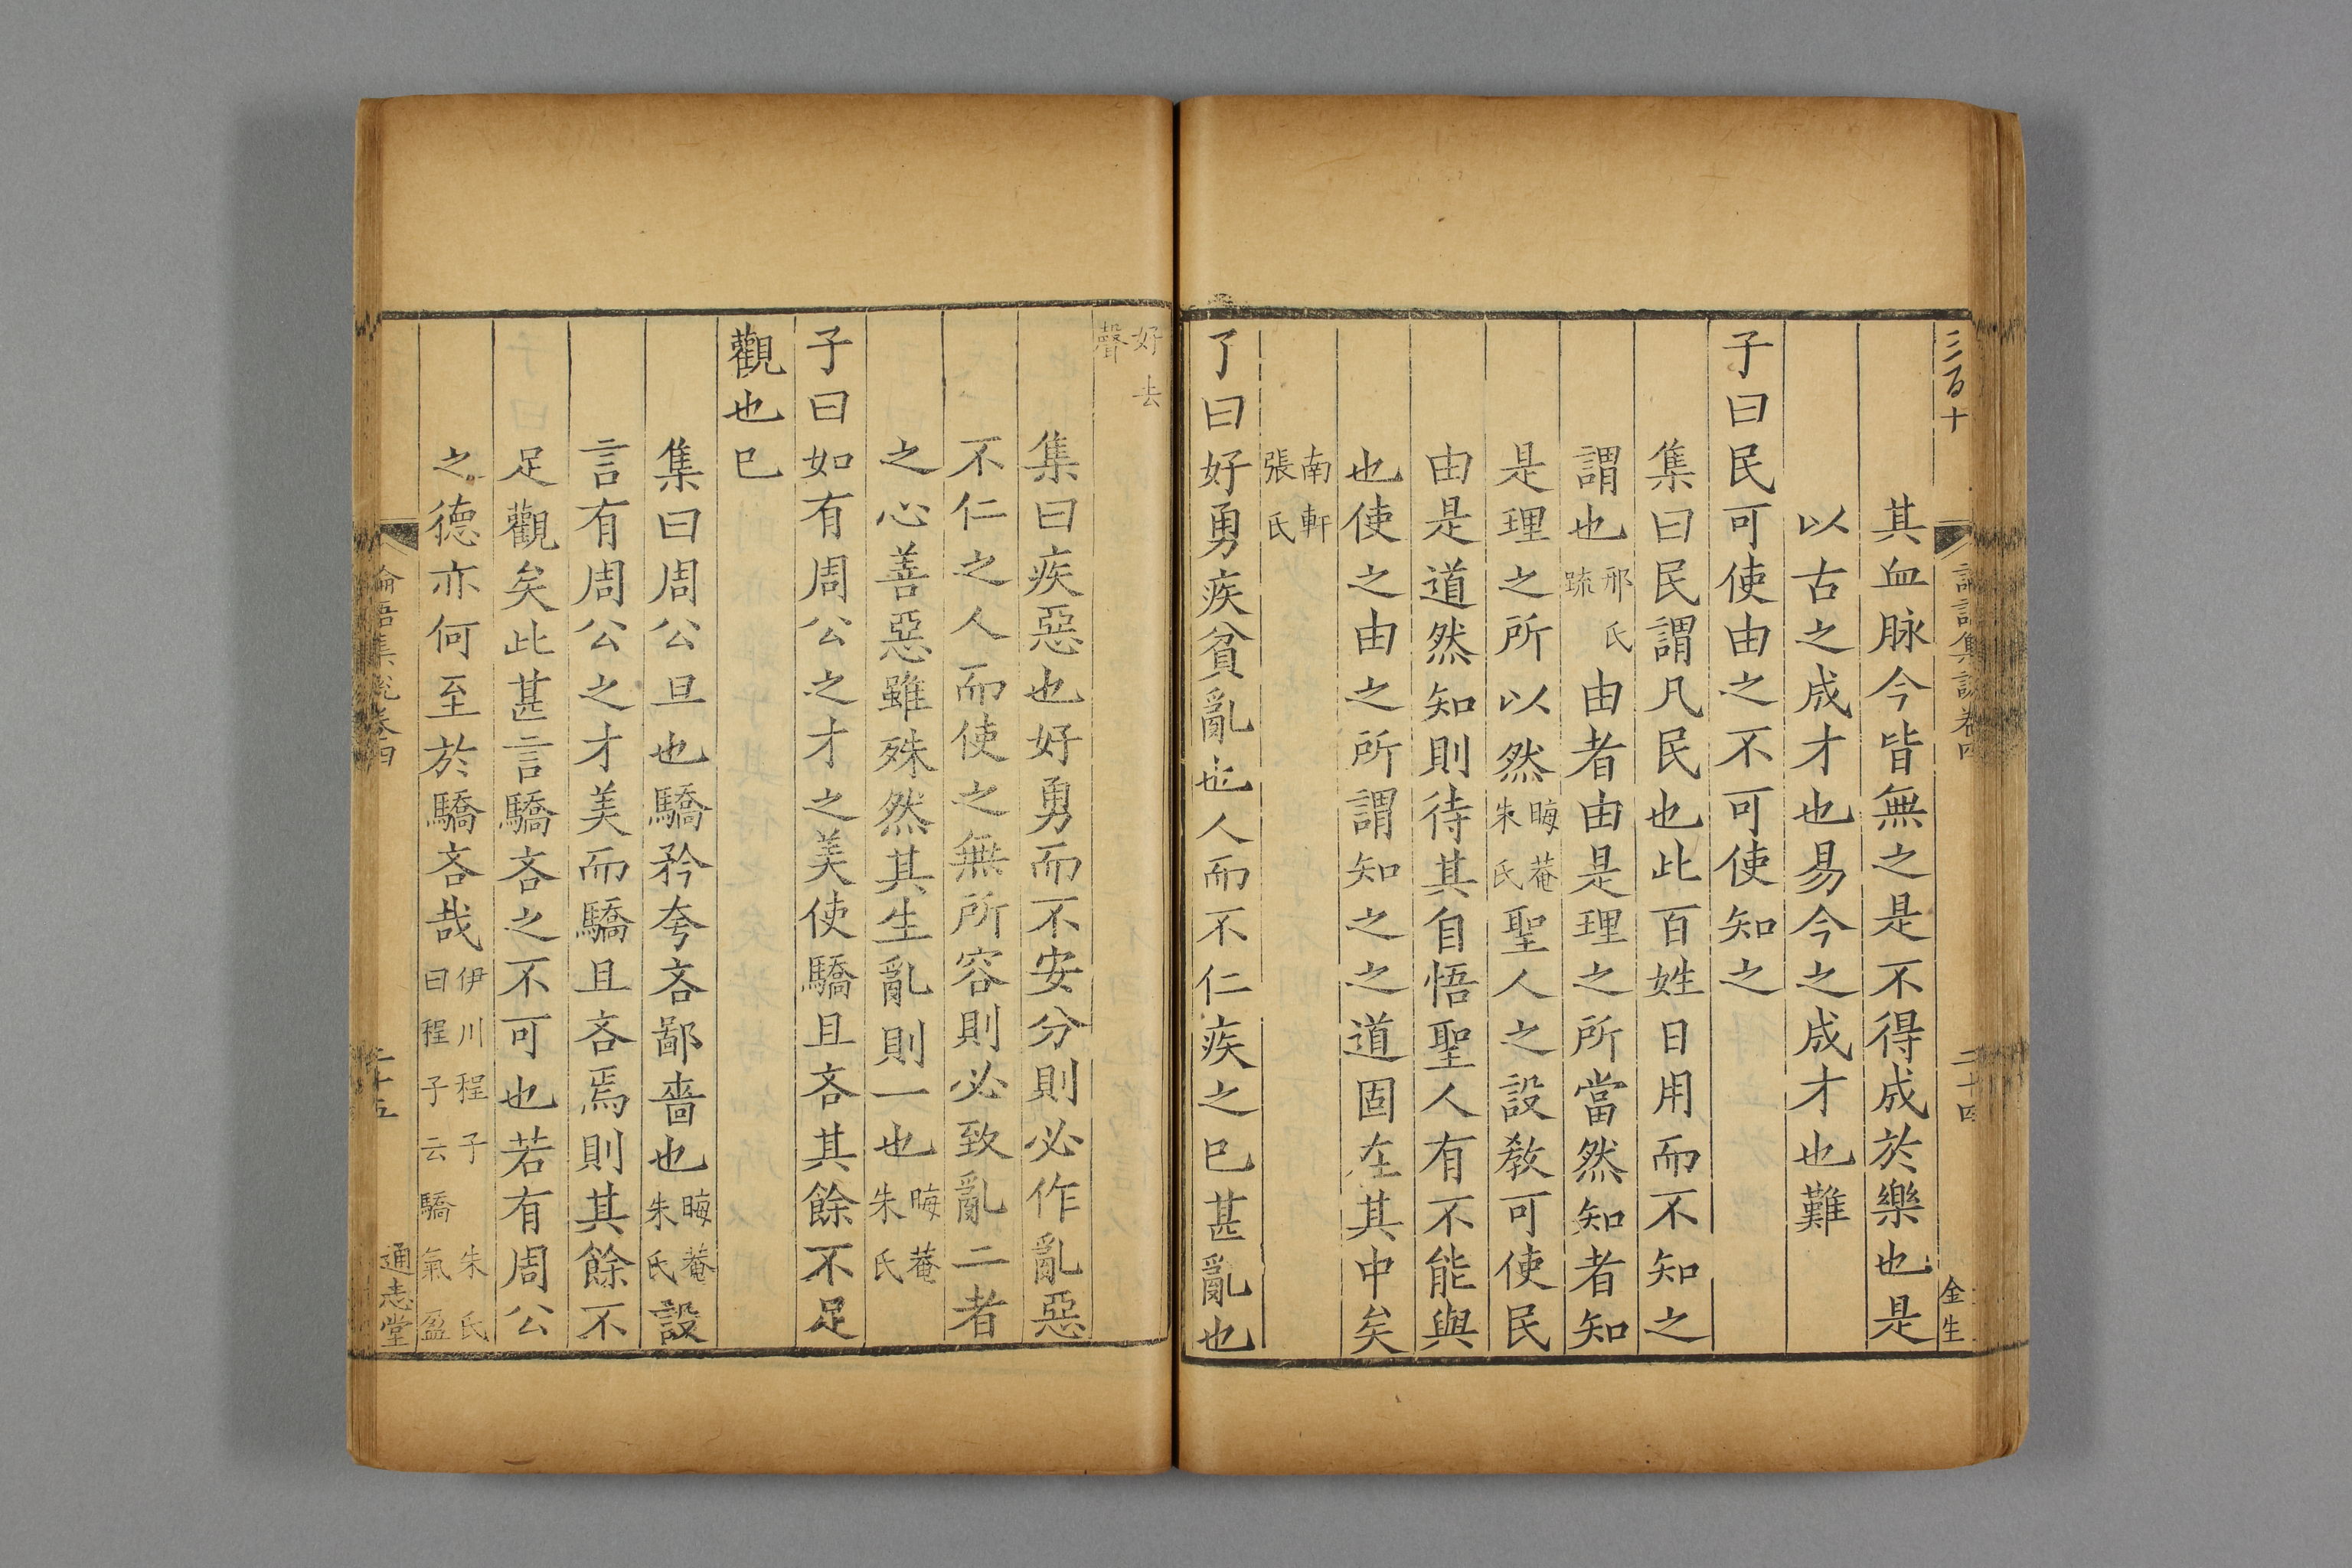 三百十
論語集説卷四
二十四
金生
其血脉今皆無之是不得成於樂也是
以古之成才也易今之成才也難
子曰民可使由之不可使知之
集曰民謂凡民也此百姓日用而不知之
謂也邢氏疏由者由是理之所當然知者知
是理之所以然晦菴朱氏聖人之設教可使民
由是道然知則待其自悟聖人有不能與
也使之由之所謂知之之道固在其中矣
南軒張氏
曰好勇疾貧亂也人而不仁疾之已甚亂也
好去聲
集曰疾惡也好勇而不安分則必作亂惡
不仁之人而使之無所容則必致亂二者
之心善惡雖殊然其生亂則一也晦菴朱氏
子曰如有周公之才之美使驕且吝其餘不足
觀也已
集曰周公旦也驕矜夸吝鄙嗇也晦菴朱氏設
言有周公之才美而驕且吝焉則其餘不
足觀矣此甚言驕吝之不可也若有周公
之德亦何至於驕吝哉伊川程子朱氏曰程子云驕氣盈
論語集説卷四
二十五
通志堂